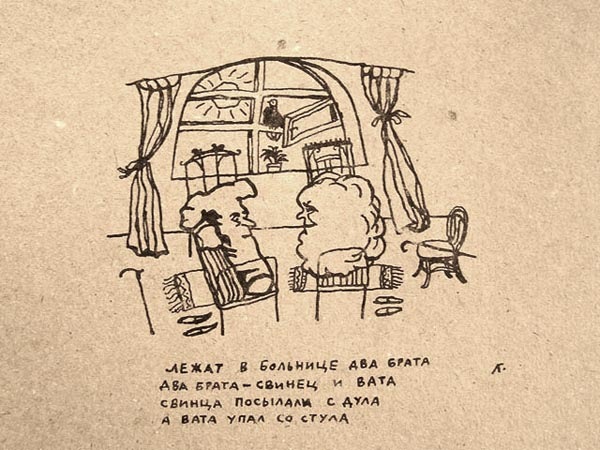 ЛЕЖАТ В БОЛЬНИЦЕ ДВА БРАТА
ДВА БРАТА-СВИНЕЦ И ВАТА
СВИНЦА ПОСЫЛАЛИ С ДУЛА
А ВАТА УПАЛ СО СТУЛА
К.